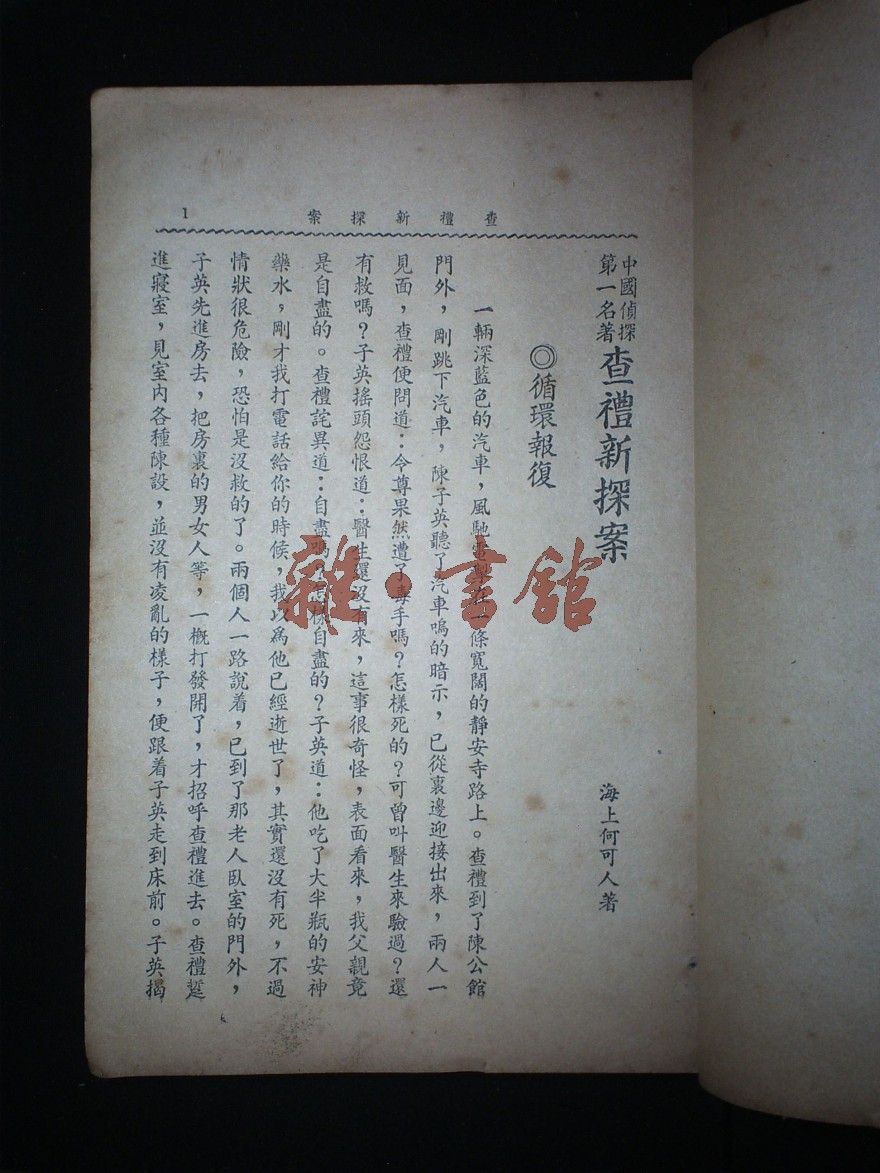 查禮新探案
1
中國偵探
第一名著
查禮新探案
海上何可人著
◎循環報復
一輛深藍色的汽車，風馳電掣在一條寬闊的靜安寺路上。查禮到了陳公館
門外，剛跳下汽車，陳子英聽了汽車嗚的暗示，已從裏邊迎接出來，兩人一
見面，查禮便問道：令尊果然遭了毒手嗎？怎樣死的？可曾叫醫生來驗過？還
有救嗎？子英搖頭怨恨道：醫生還沒有來，這事很奇怪，表面看來，我父親竟
是自盡的。查禮詫異道：自盡嗎？怎樣自盡的？子英道：他吃了大半瓶的安神
藥水，剛才我打電話給你的時候，我以爲他已經逝世了，其實還沒有死，不過
情狀很危險，恐怕是沒救的了。兩個人一路說着，已到了那老人臥室的門外，
子英先進房去，把房裏的男女人等，一概打發開了，才招呼查禮進去。查禮踅
進寢室，見室內各種陳設，並沒有凌亂的樣子，便跟着子英走到床前。子英揭
雜·書館